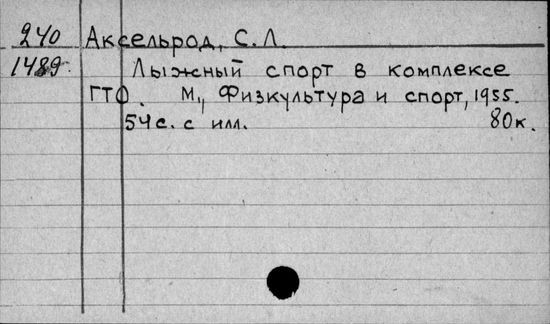 240 Аксельрод, С. Л.
1489 Лыжный спорт в комплексе
ГТО. М., Физкультура и спорт, 1955.
54 с. с илл. 80 к.